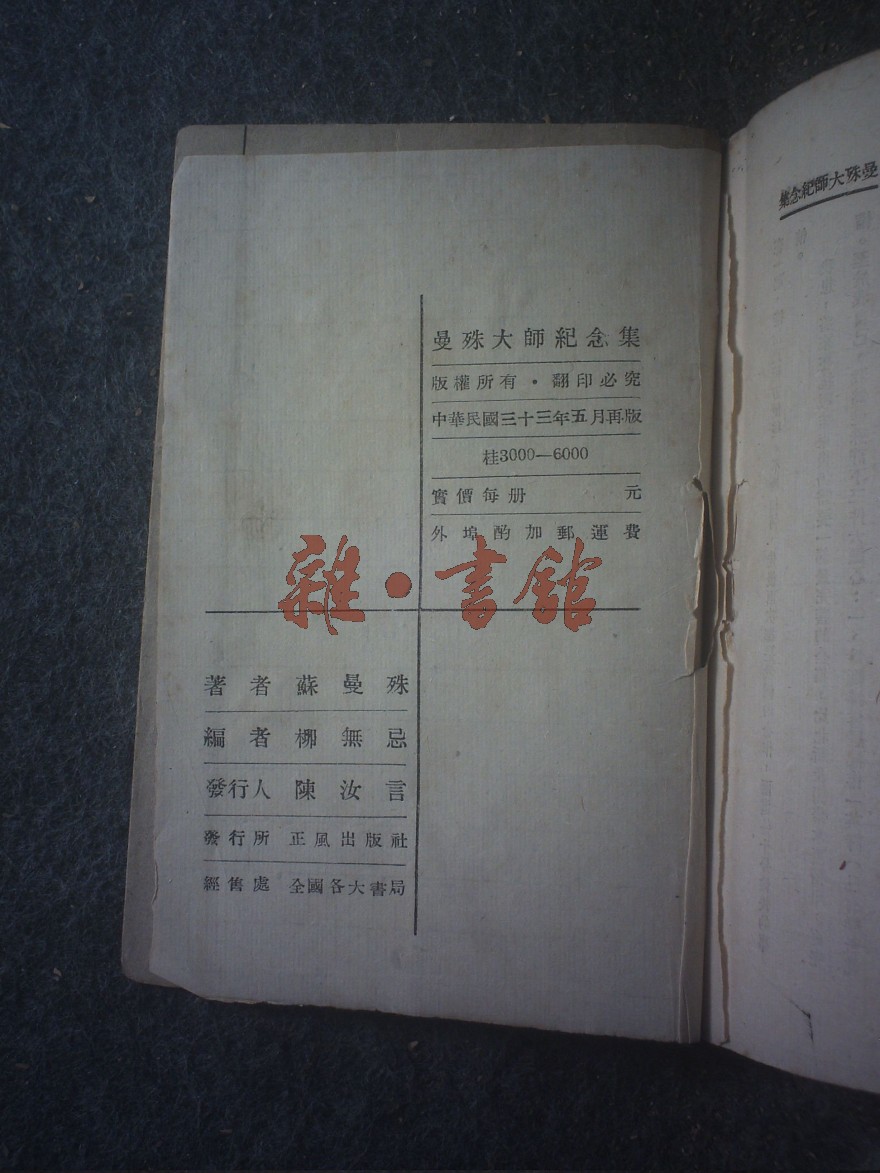 曼殊大師紀念集
版權所有・翻印必究
中華民國三十三年五月再版
桂3000—6000
實價每册 元
外埠酌加郵運費
雜・書館
著者 蘇曼殊
編者 柳無忌
發行人 陳汝言
發行所 正風出版社
經售處 全國各大書局
曼殊大師紀念集